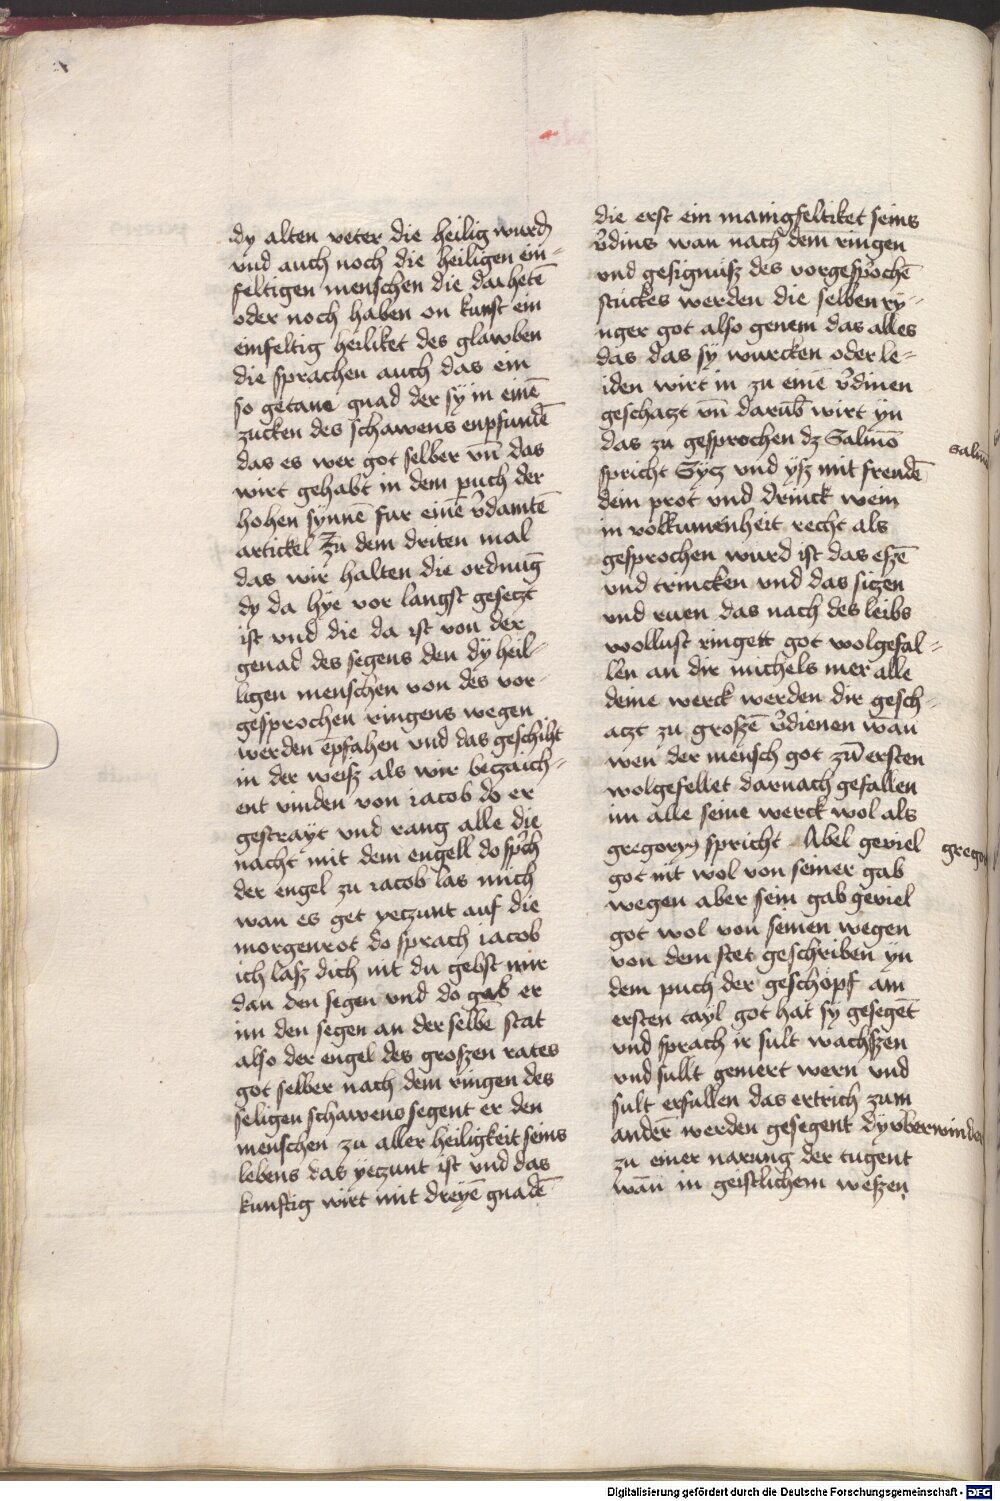 dy alten veter die heilig wurdn̄
vnd auch noch die heiligen ein-
feltigen menschen die da hetē
oder noch haben on kunst ein
einfeltig heiliket des glawben
die sprachen auch das ein
so getane gnad der sy in einē
zucken des schawens enpfundē
das es wer got selber vn̄ das
wirt gehabt in dem puch der
hohen synnē fur einē v̄damtē
artickel Zu dem driten mal
das wir halten die ordnūg
dy da hye vor langst gesetzt
ist vnd die da ist von der
genad des segens den dy heil-
ligen menschen von des vor-
gesprochen ringens wegen
werden ēpfahen vnd das geschiht
in der weisz als wir betzaich-
ent vinden von iacob do er
gestrayt vnd rang alle die
nacht mit dem engell do sp̄ch
der engel zu iacob las mich
wan es get yeczunt auf die
morgenrot do sprach iacob
ich lasz dich nit du gebst mir
dan den segen vnd do gab er
im den segen an der selbē stat
also der engel des groszen rates
got selber nach dem ringen des
seligen schawens segent er den
menschen zu aller heiligkeit seins
lebens das yeczunt ist vnd das
kunftig wirt mit dreyē gnadē
die erst ein manigfeltiket seins
v̄dins wan nach dem ringen
vnd gesignusz des vorgesp̄ochē
stuckes werden die selben ry-
nger got also genem das alles
das das sy wurcken oder le-
iden wirt in zu einē v̄dinen
geschatzt vn̄ darūb wirt yn
das zu gesprochen dz Salmō
Salmō
spricht Sycz vnd ysz mit frendē
dem prot vnd drinck wein
in volkumenheit recht als
gesprochen wurd ist das eszē
vnd trincken vnd das sizen
vnd ruen das nach des leibs
wollust ringett got wolgefal-
len an dir michels mer alle
deine werck werden dir gesch-
atzt zu groszē v̄dienen wan
wen der mensch got zū ersten
wolgefellet darnach gefallen
im alle seine werck wol als
gregory9 spricht Abel geviel
gregor
got nit wol von seiner gab
wegen aber sein gab geviel
got wol von seinen wegen
von dem stet geschriben yn
dem puch der geschöpf am
ersten tayl got hat sy gesegēt
vnd sprach ir sult wachszen
vnd sullt gemert wern vnd
sult erfullen das ertrich zum
ander werden gesegent dy vberwinder
zu einer narung der tugent
wān in geistlichem weszen
Digitalisierung gefördert durch die Deutsche Forschungsgemeinschaft - DFG